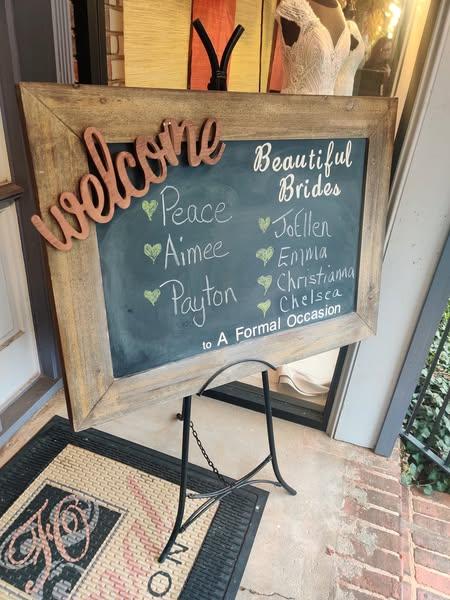 welcome
Beautiful
Brides
Peace
Aimee
Payton
JoEllen
Emma
Christianna
Chelsea
to A Formal Occasion